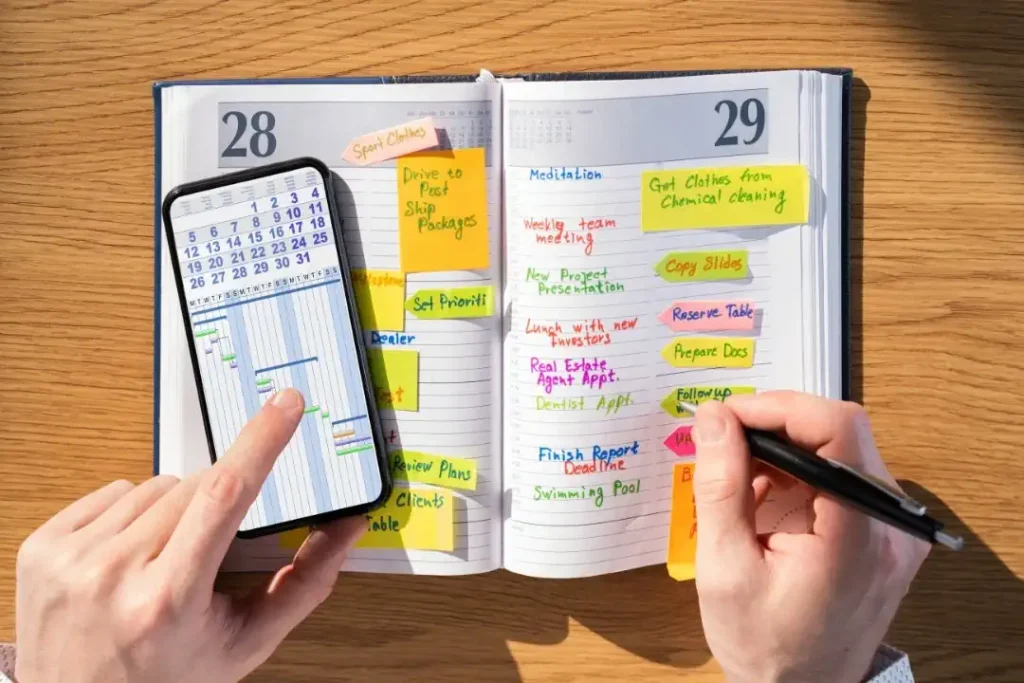 28
Sport Clothes
Drive to
Post
Ship
Packages
Set Prioriti
Dealer
Review Plans
Clients
Table
1 2 3 4
5 6 7 8 9 10 11
12 13 14 15 16 17 18
19 20 21 22 23 24 25
26 27 28 29 30 31
M T W T F S S M T W T F S S M T W T F S S M T W T F S S
29
Meditation
Get Clothes from
Chemical cleaning
Weekly team
meeting
Copy Slides
New Project
Presentation
Reserve Table
Lunch with new
Investors
Prepare Docs
Real Estate
Agent Appt.
Dentist Appt.
Follow up
Finish Report
Deadline
Swimming Pool